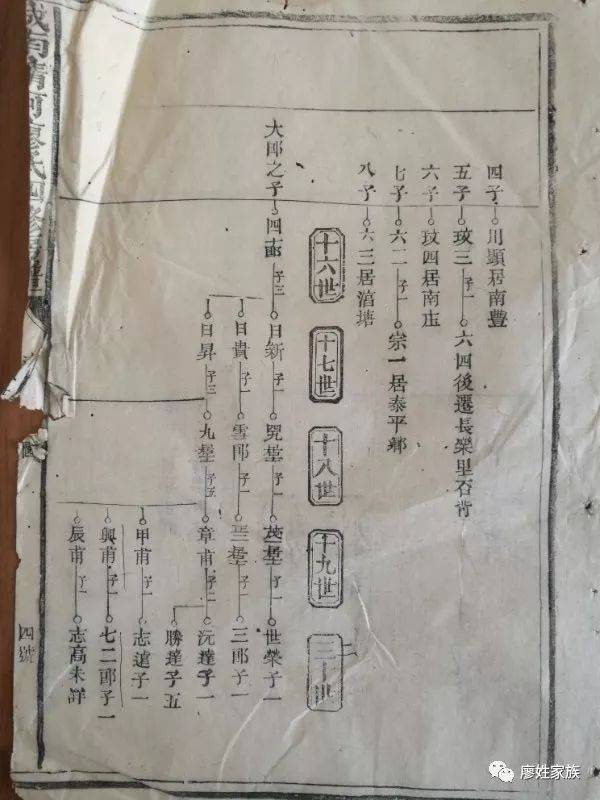 四子 川顯居南豐
五子 玟三 子一 六四後遷長榮里石背
六子 玟四居南庄
七子 六二 子一 崇一居泰平鄉
八子 六三居涫塘
十六世 十七世 十八世 十九世 二十世
大郎之子 四郎 子三 日新 子一 子一 茂 子一 世榮子一
日貴 子一 雪郎 子一 三郎子一
日昇 子三 九 子五 章甫 子二 沅達子一
勝達子五
甲甫 子一 志遠子一
興甫 子一 七二郎子一
辰甫 子一 志高未詳
城南清河廖氏四修
四號
廖姓家族